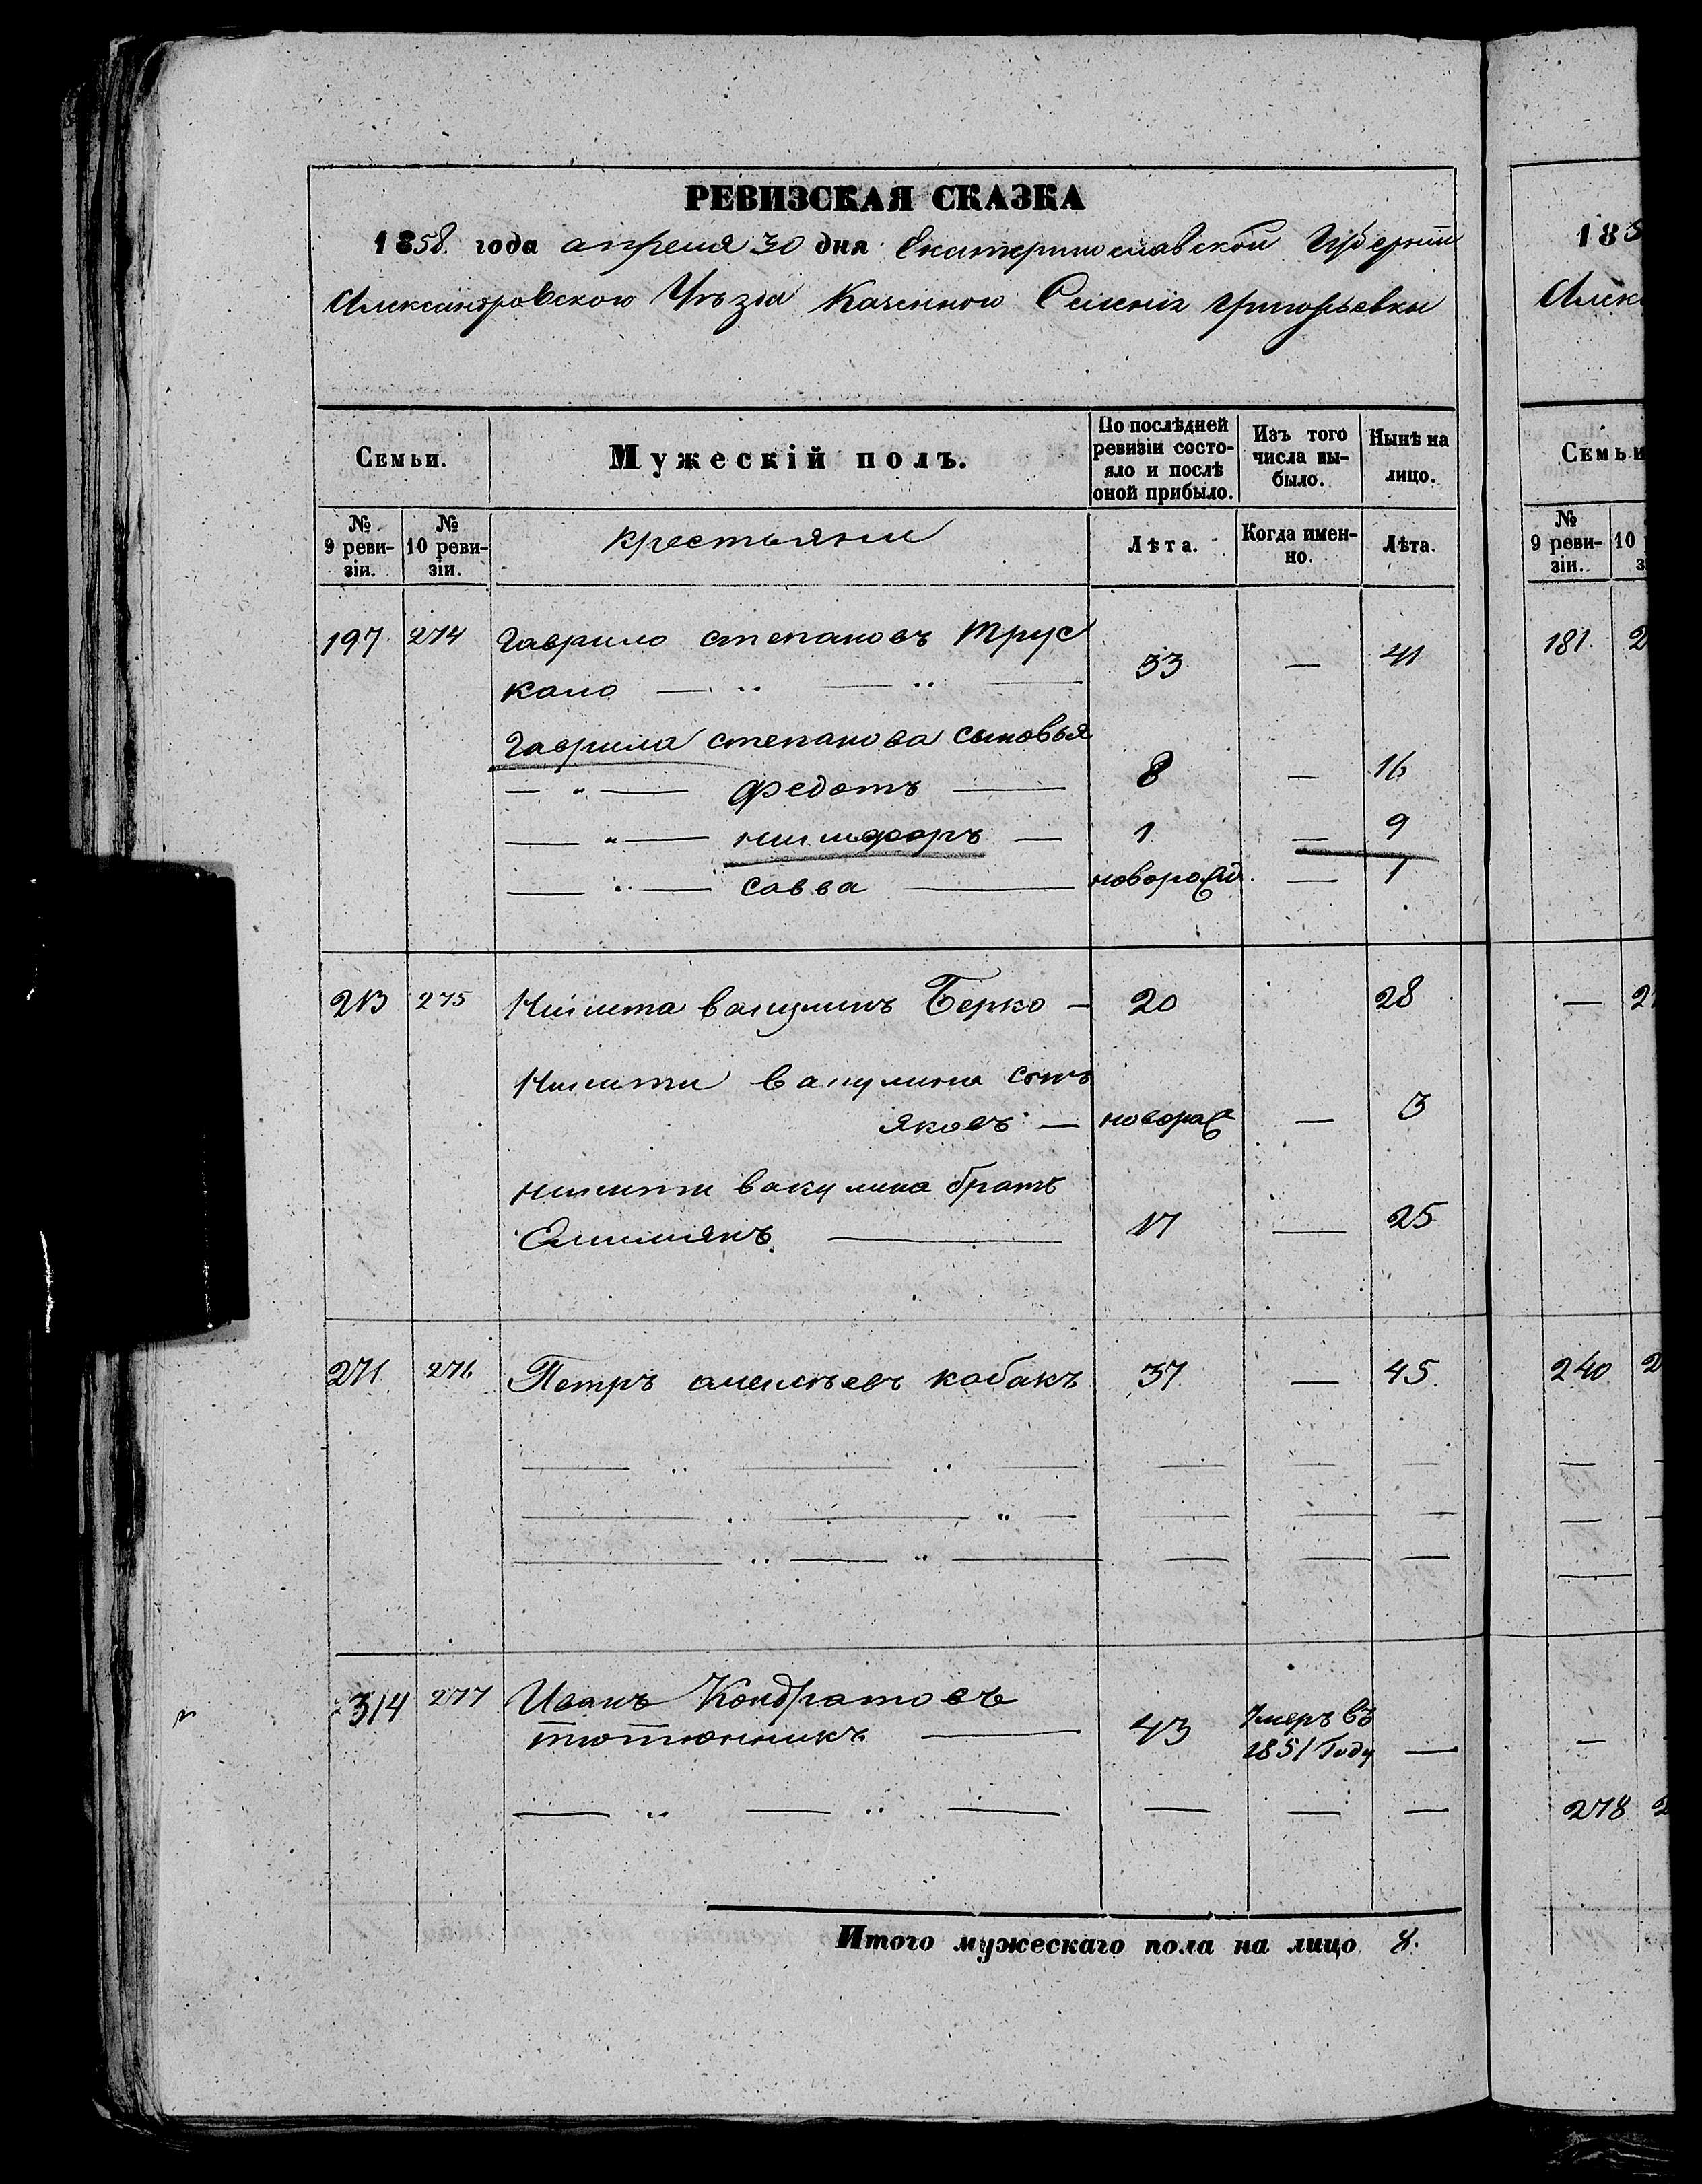 РЕВИЗСКАЯ СКАЗКА
1858 года апреля 30 дня Екатеринославской Губерніи
Александровского Уѣзда Казенного Селенія Григорьевки
Семьи.
Мужескій полъ.
По послѣдней ревизіи состояло и послѣ оной прибыло.
Изъ того числа выбыло.
Нынѣ на лицо.
№ 9 ревизіи.
№ 10 ревизіи.
крестьяни
Лѣта.
Когда именно.
Лѣта.
197 274 Гаврило степановъ Трус
кало — 33 — 41
Гаврила степанова сыновья
— " — федотъ — 8 — 16
— " — никифоръ — 1 — 9
— " — савва — новорожд. — 1
213 275 Никита вакулинъ Берко — 20 28
Никити вакулина сынъ
яковъ — новорож — 3
никити вакулина братъ
Емилиянъ — 17 — 25
271 276 Петръ алексѣевъ кобакъ 37 — 45
314 277 Иванъ Кондратовъ
тютюнникъ — 43 Умеръ въ 1851 Году —
Итого мужескаго пола на лицо 8.
185
Алек
Семьи
№ 9 ревизіи.
10
181 2
— 2
240 2
—
278 2